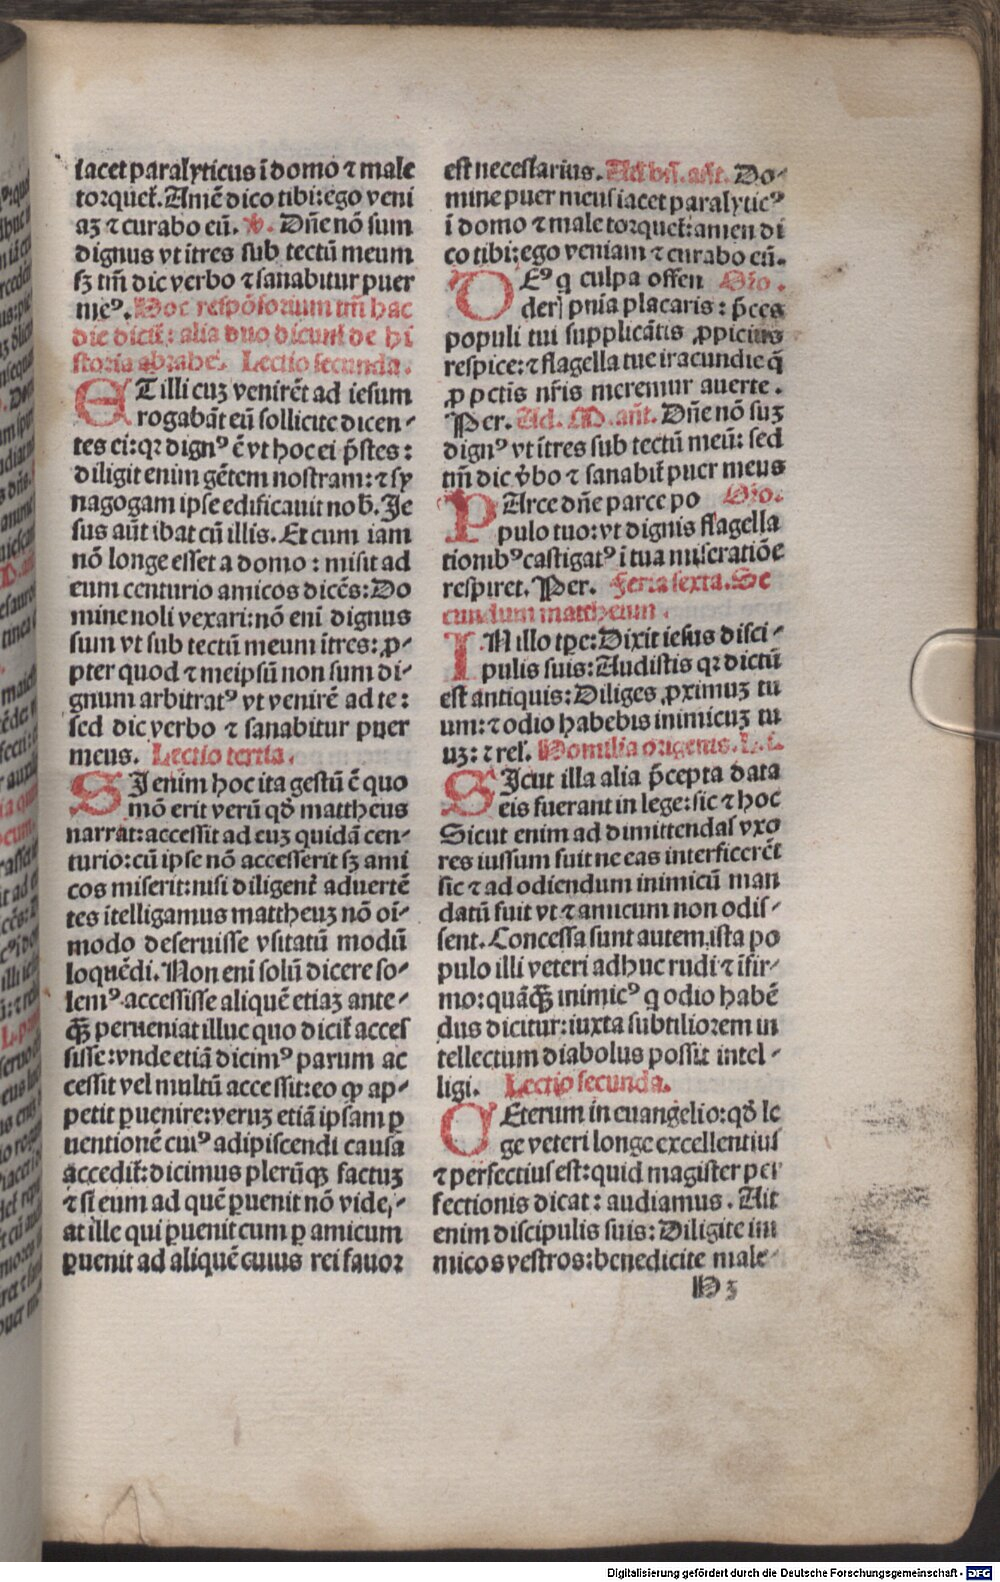 iacet paralyticus ī domo ⁊ male
torqueť. Amē dico tibi: ego veni
aʒ ⁊ curabo eū. ℣. Dn̄e nō sum
dignus vt ītres sub tectū meum
sʒ tm̄ dic verbo ⁊ sanabitur puer
meꝰ. Hoc respōsorium tm̄ hac
die diciť: alia duo dicunť de hi
storia abrahe. Lectio secunda.
ET illi cuʒ venirēt ad iesum
rogabāt eū sollicite dicen-
tes ei: qꝛ dignꝰ ē vt hoc ei p̄stes:
diligit enim gētem nostram: ⁊ sy
nagogam ipse edificauit nob̄. Je
sus aūt ibat cū illis. Et cum iam
nō longe esset a domo: misit ad
eum centurio amicos dicēs: Do
mine noli vexari: nō eni dignus
sum vt sub tectū meum ītres: ꝓ-
pter quod ⁊ meipsū non sum di-
gnum arbitratꝰ vt venirē ad te:
sed dic verbo ⁊ sanabitur puer
meus. Lectio tertia.
SI enim hoc ita gestū ē quo
mō erit verū qd̄ mattheus
narrat: accessit ad euʒ quidā cen-
turio: cū ipse nō accesserit sʒ ami
cos miserit: nisi diligenť aduertē
tes ītelligamus mattheuʒ nō oī-
modo deseruisse vsitatū modū
loquēdi. Non eni solū dicere so-
lemꝰ accessisse aliquē etiaʒ ante-
qꝫ̄ perueniat illuc quo diciť acces
sisse: vnde etiā dicimꝰ parum ac
cessit vel multū accessit: eo ꝙ ap-
petit ꝑuenire: veruʒ etiā ipsam ꝑ
uentionē cuiꝰ adipiscendi causa
accediť: dicimus plerūqꝫ factuʒ
⁊ si eum ad quē ꝑuenit nō vide,-
at ille qui ꝑuenit cum ꝑ amicum
ꝑuenit ad aliquē cuius rei fauor
est necessarius. Ad bn̄. an̄t. Do-
mine puer meus iacet paralyticꝰ
ī domo ⁊ male torqueť: amen di
co tibi: ego veniam ⁊ curabo eū.
DEꝰ q culpa offen Oꝛo.
deris pnīa placaris: p̄ces
populi tui supplicātis ꝓpicius
respice: ⁊ flagella tue iracundie q̄
ꝓ pctīs nr̄is meremur auerte.
Per. Ad. M. an̄t. Dn̄e nō suʒ
dignꝰ vt ītres sub tectū meū: sed
tm̄ dic v̄bo ⁊ sanabiť puer meus
PArce dn̄e parce po Oꝛo.
pulo tuo: vt dignis flagella
tionibꝰ castigatꝰ ī tua miseratiōe
respiret. Per. Feria sexta. Se
cundum mattheum.
IN illo tꝑe: Dixit iesus disci-
pulis suis: Audistis qꝛ dictū
est antiquis: Diliges ꝓximuʒ tu
um: ⁊ odio habebis inimicuʒ tu
uʒ: ⁊ rel̄. Homilia origenis. L. i.
SIcut illa alia p̄cepta data
eis fuerant in lege: sic ⁊ hoc
Sicut enim ad dimittendas vxo
res iussum fuit ne eas interficerēt
sic ⁊ ad odiendum inimicū man
datū fuit vt ⁊ amicum non odis-
sent. Concessa sunt autem ista po
pulo illi veteri adhuc rudi ⁊ īfir-
mo: quāqꝫ̄ inimicꝰ q odio habē
dus dicitur: iuxta subtiliorem in
tellectum diabolus possit intel-
ligi. Lectio secunda.
CEterum in euangelio: qd̄ le
ge veteri longe excellentius
⁊ perfectius est: quid magister per
fectionis dicat: audiamus. Ait
enim discipulis suis: Diligite ini
micos vestros: benedicite male-
H 3
Digitalisierung gefördert durch die Deutsche Forschungsgemeinschaft - DFG